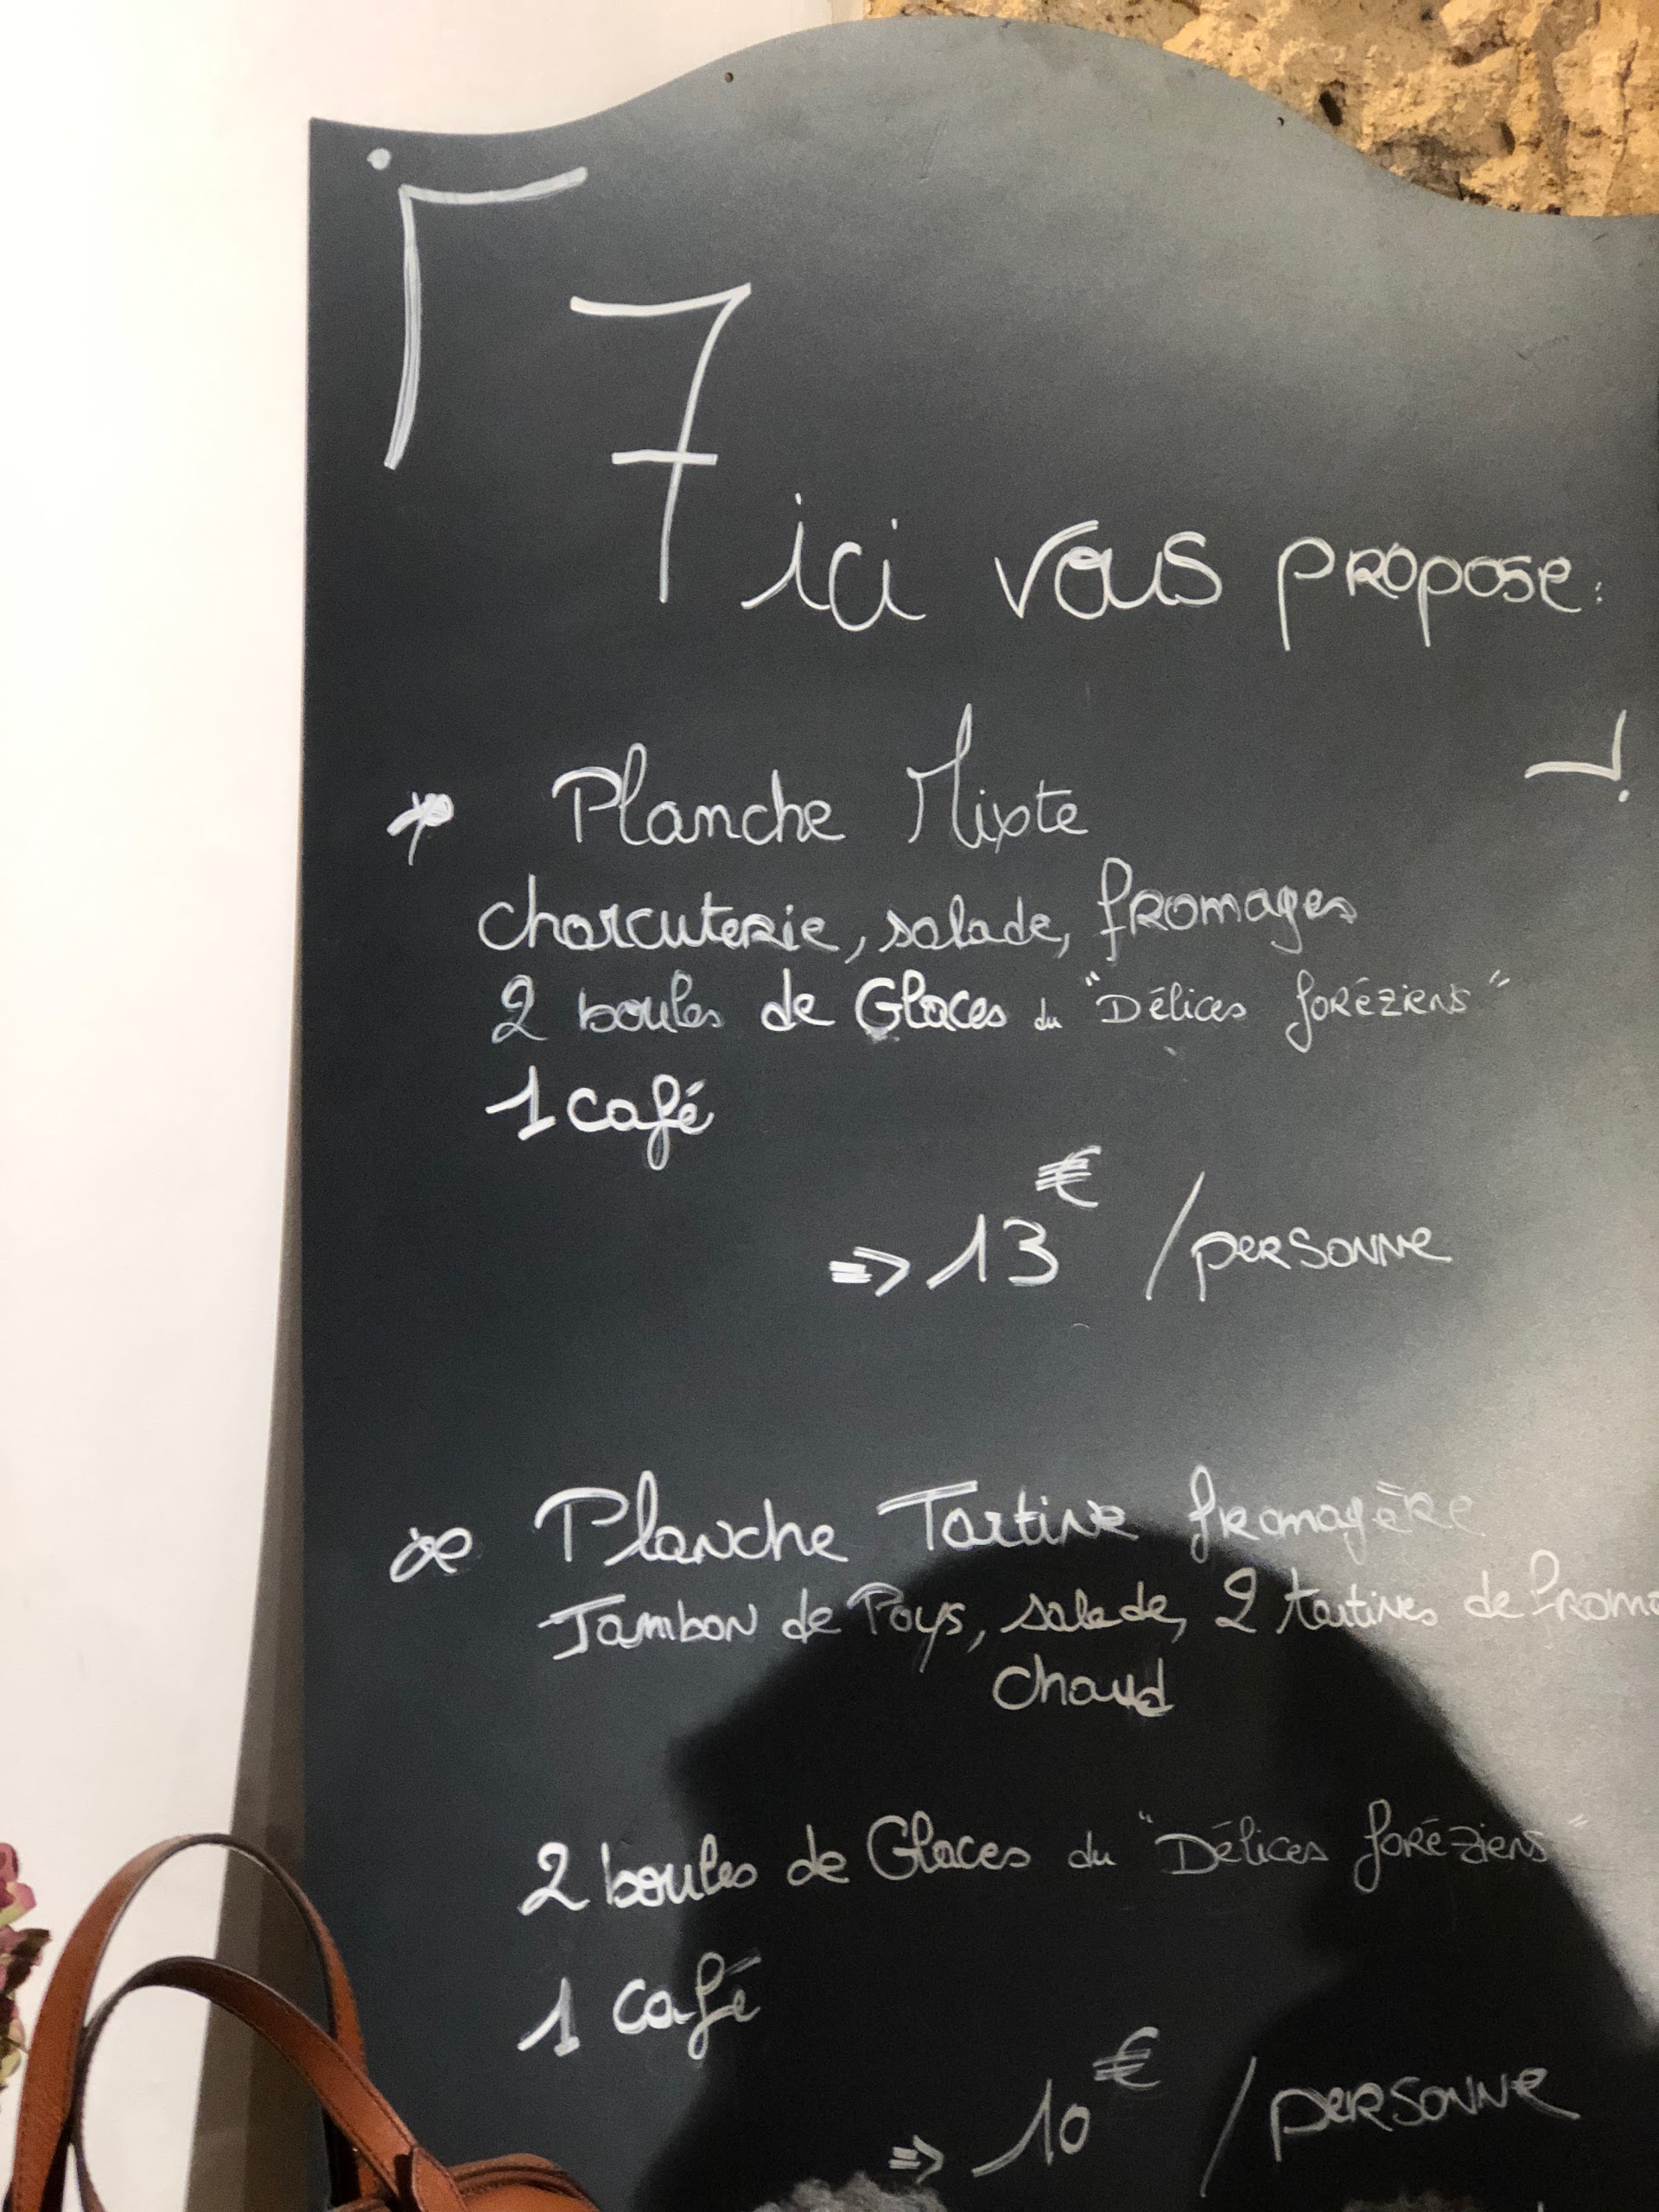 7 ici vous propose:
Planche Mixte
charcuterie, salade, fromages
2 boules de Glaces du "Délices foréziens"
1 café
⇒ 13€ / personne
Planche Tartine fromagère
Jambon de Pays, salade, 2 tartines de froma
chaud
2 boules de Glaces du "Délices foréziens"
1 café
⇒ 10€ / personne